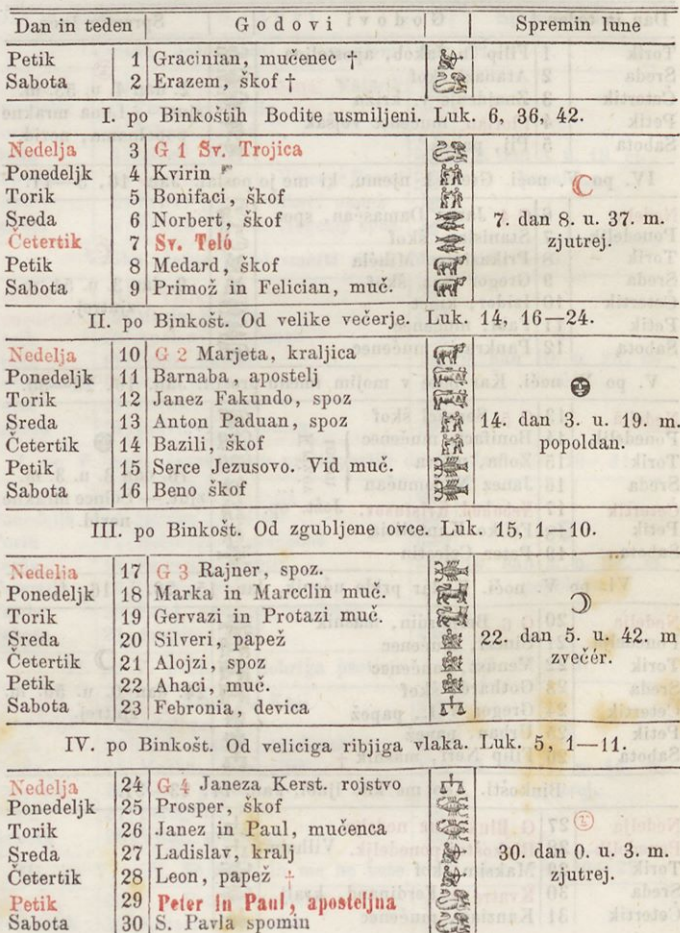 Dan in teden Godovi Spremin lune
Petik 1 Gracinian, mučenec †
Sabota 2 Erazem, škof †
I. po Binkoštih Bodite usmiljeni. Luk. 6, 36, 42.
Nedelja 3 G 1 Sv. Trojica
Ponedeljk 4 Kvirin
Torik 5 Bonifaci, škof
Sreda 6 Norbert, škof 7. dan 8. u. 37. m.
Četertik 7 Sv. Teló zjutrej.
Petik 8 Medard, škof
Sabota 9 Primož in Felician, muč.
II. po Binkošt. Od velike večerje. Luk. 14, 16—24.
Nedelja 10 G 2 Marjeta, kraljica
Ponedeljk 11 Barnaba, apostelj
Torik 12 Janez Fakundo, spoz
Sreda 13 Anton Paduan, spoz 14. dan 3. u. 19. m.
Četertik 14 Bazili, škof popoldan.
Petik 15 Serce Jezusovo. Vid muč.
Sabota 16 Beno škof
III. po Binkošt. Od zgubljene ovce. Luk. 15, 1.—10.
Nedelia 17 G 3 Rajner, spoz.
Ponedeljk 18 Marka in Marcclin muč.
Torik 19 Gervazi in Protazi muč.
Sreda 20 Silveri, papež 22. dan 5. u. 42. m
Četertik 21 Alojzi, spoz zvečér.
Petik 22 Ahaci, muč.
Sabota 23 Febronia, devica
IV. po Binkošt. Od veliciga ribjiga vlaka. Luk. 5, 1—11.
Nedelja 24 G 4 Janeza Kerst. rojstvo
Ponedeljk 25 Prosper, škof
Torik 26 Janez in Paul, mučenca
Sreda 27 Ladislav, kralj 30. dan 0. u. 3. m.
Četertik 28 Leon, papež † zjutrej.
Petik 29 Peter in Paul, aposteljna
Sabota 30 S. Pavla spomin